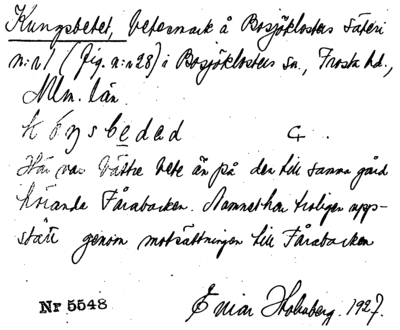 Kungsbetet, betesmark å Bosjöklosters säteri
n:r 1 (fig. a:n 28) i Bosjöklosters sn., Frosta hd.,
Mlm. län.
Här var bättre bete än på den till samma gård
hörande Fårabacken. Namnet har troligen upp-
stått genom motsättningen till Fårabacken
Nr 5548
Einar Holmberg. 1927.